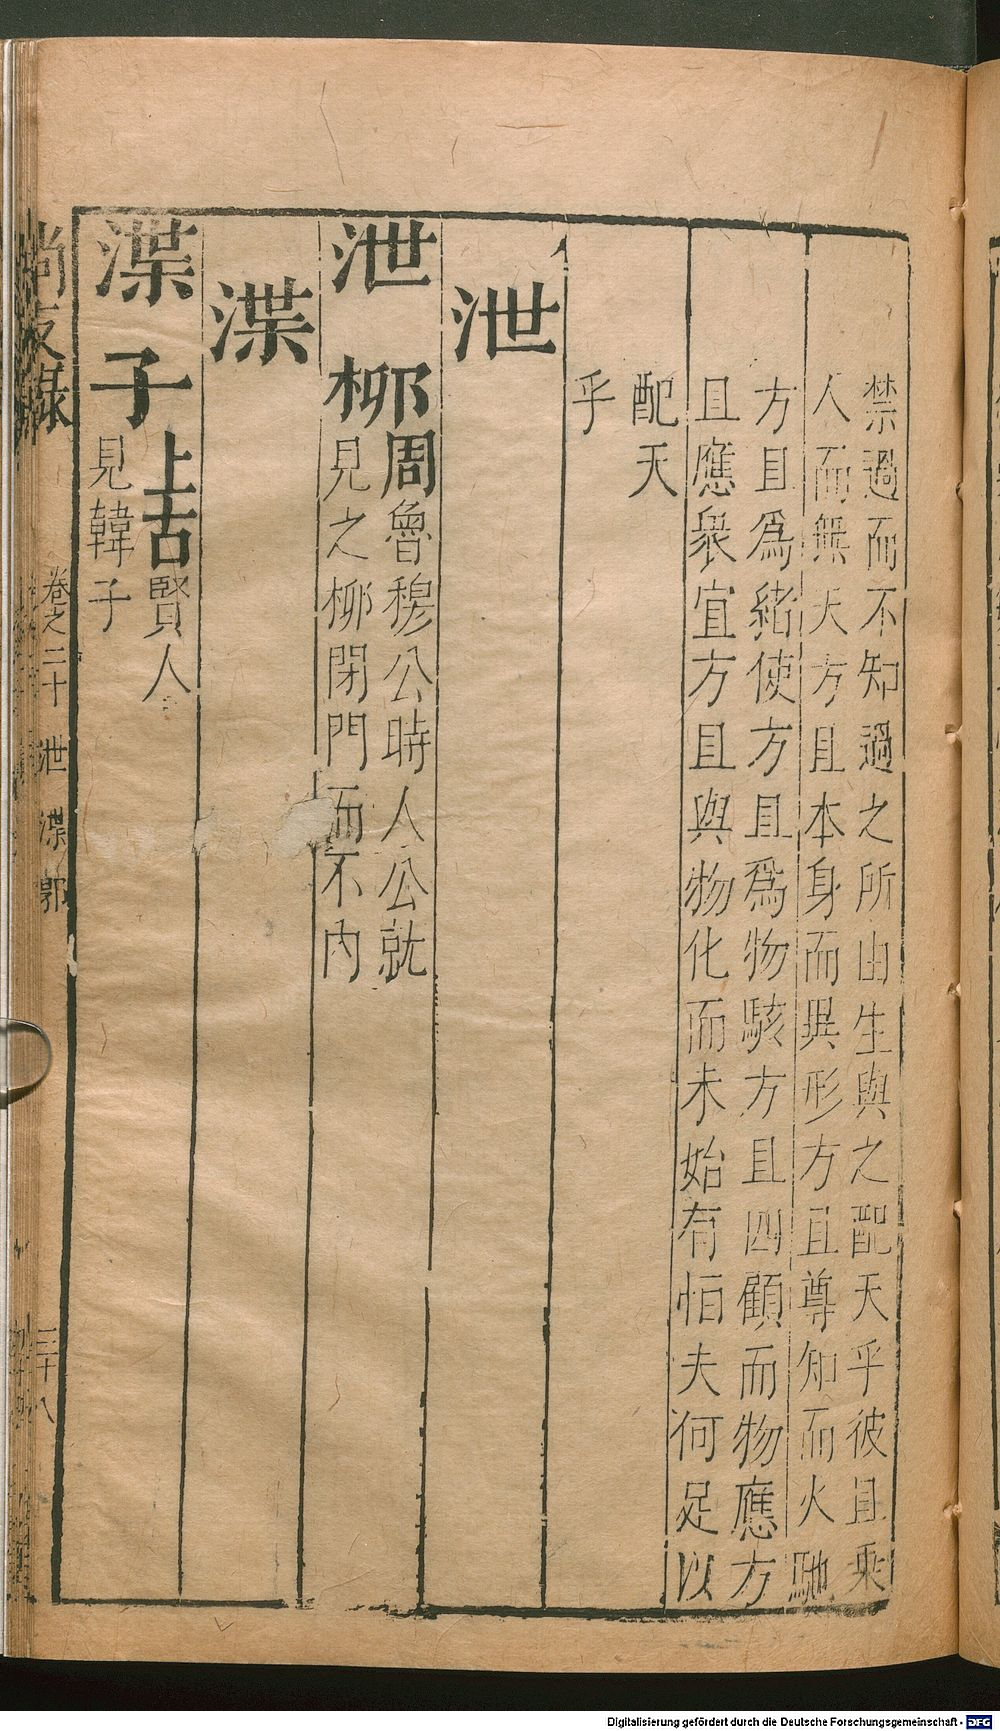 禁過而不知過之所由生與之配天乎彼且乘
人而無天方且本身而異形方且尊知而火馳
方且爲緒使方且爲物駭方且四顧而物應方
且應衆宜方且與物化而未始有恒夫何足以
配天
乎
泄
泄柳周魯穆公時人公就
見之柳閉門而不內
渫
渫子上古賢人
見韓子
尚友錄 卷之二十 泄 渫 郭 三十八
Digitalisierung gefördert durch die Deutsche Forschungsgemeinschaft - DFG